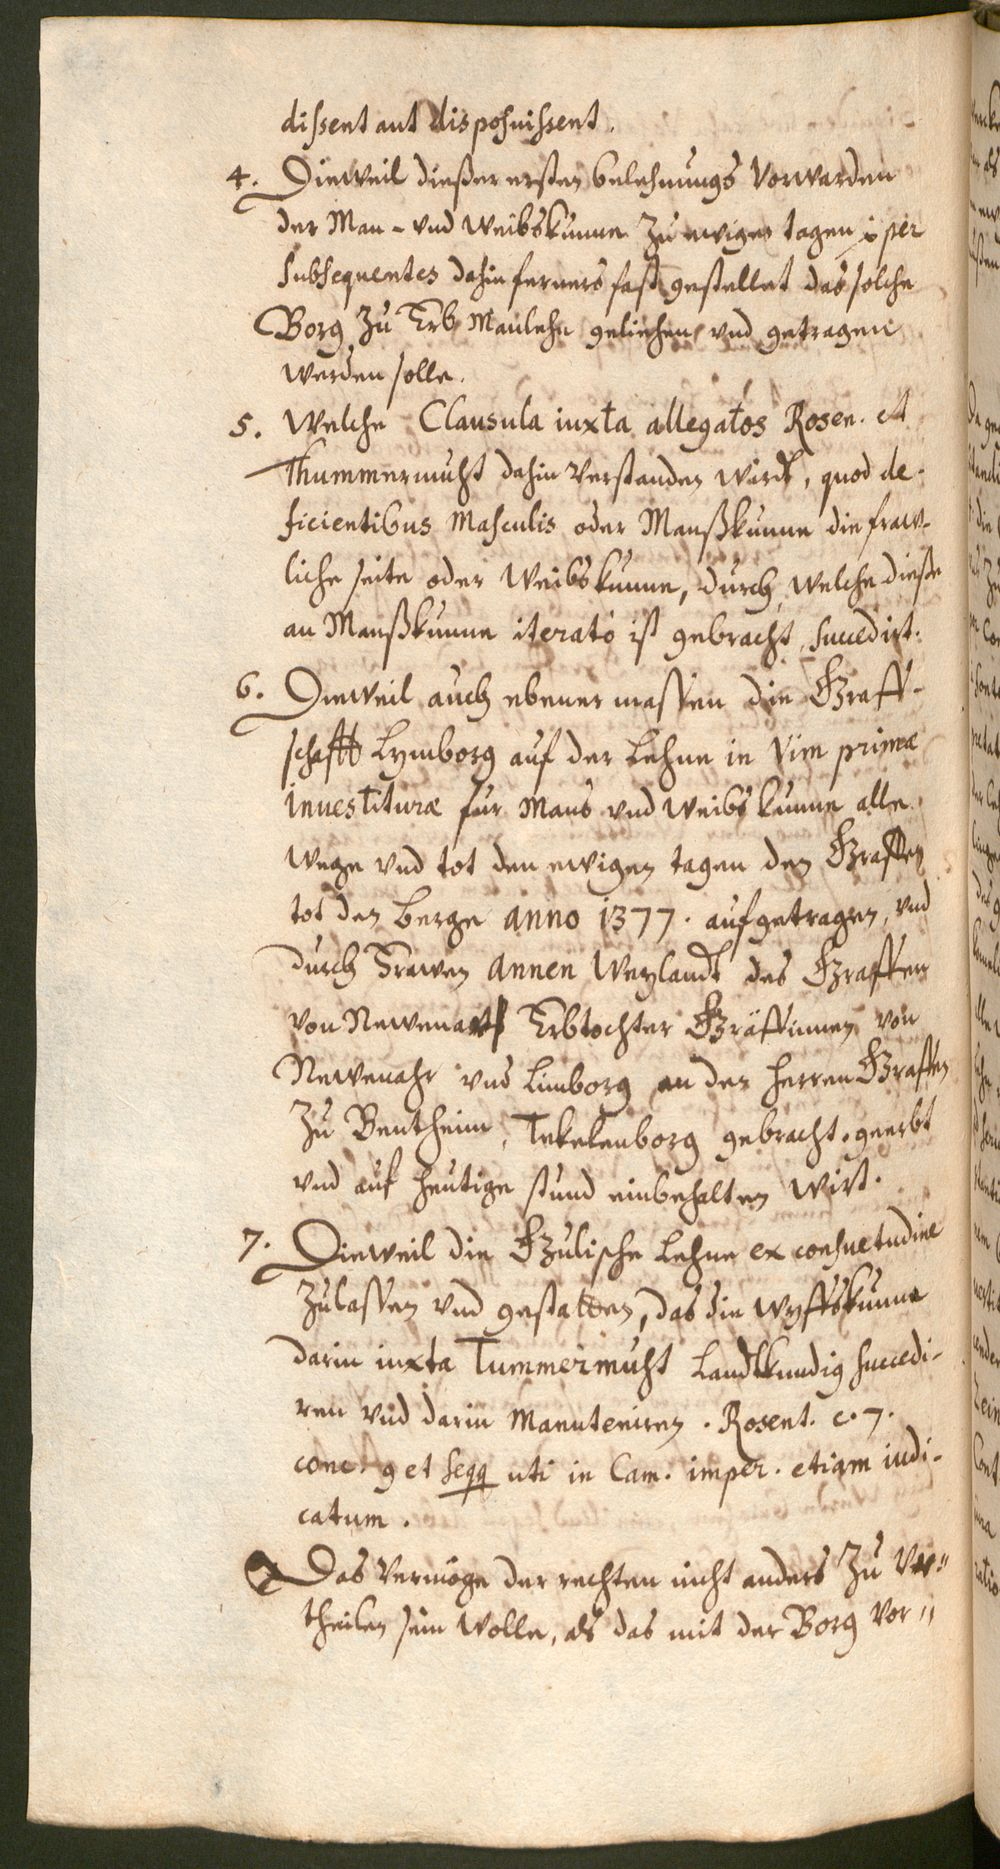 dissent aut disposuissent.
4. Dieweil dießer ersten belehnungs Vorwarden
der Man- vnd Weibskunne zu ewigen tagen per
subsequentes dahin ferners fast gestellet das solche
Borg zu Erb Manlehn geliehen vnd getragen
werden solle.
5. Welche Clausula iuxta allegatos Rosen. et
Thummermuht dahin verstanden wirdt, quod de-
ficientibus masculis oder Manßkunne die fraw-
liche seite oder Weibskunne, durch welche dieße
an Manßkunne iterato ist gebracht, succedirt.
6. Dieweil auch ebener massen die Graff-
schafft Lymborg auf der Lehne in vim primæ
inuestituræ fur Mans vnd Weibskunne alle
wege vnd tot den ewigen tagen den Graffen
tot den Berge anno 1377. aufgetragen, vnd
durch Frawen Annen Weylandt des Graffen
von Newenar Erbtochter Gräffinnen von
Newenahr vnd Limborg an den Herren Graffen
zu Bentheim, Tekelenborg gebracht, geerbt
vnd auf heutige stund einbehalten wirt.
7. Dieweil die Gulische Lehne ex consuetudine
zulassen vnd gestatten, das die Wyffskunne
darin iuxta Tummermuht Landtkundig succedi-
ren vnd darin manuteniren. Rosent. c. 7.
conc. 9 et seqq uti in Cam. imper. etiam iudi-
catum.
Das vermöge der rechten nicht anders zu Vr-
theilen sein wolle, als das mit der Borg Vor-